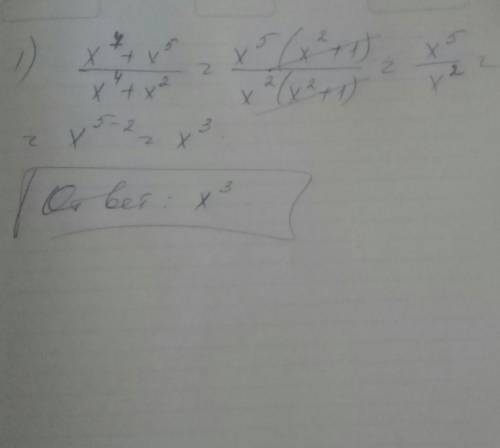 1) (x⁷ + x⁵)/(x⁴ + x²) = (x⁵(x² + 1))/(x²(x² + 1)) = x⁵/x² =
= x⁵⁻² = x³
Ответ: x³